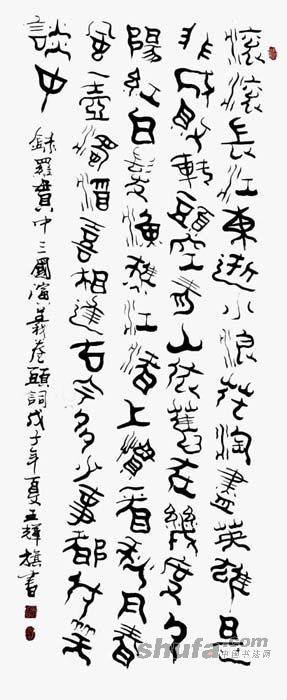 滚滚長江東逝水浪花淘盡英雄是
非成敗轉頭空青山依舊在幾度夕
陽紅白髮漁樵江渚上慣看秋月春
風一壺濁酒喜相逢古今多少事都付笑
談中
錄羅貫中三國演義卷頭詞戊子年夏王輝旗書
shufa.com
中国书法网